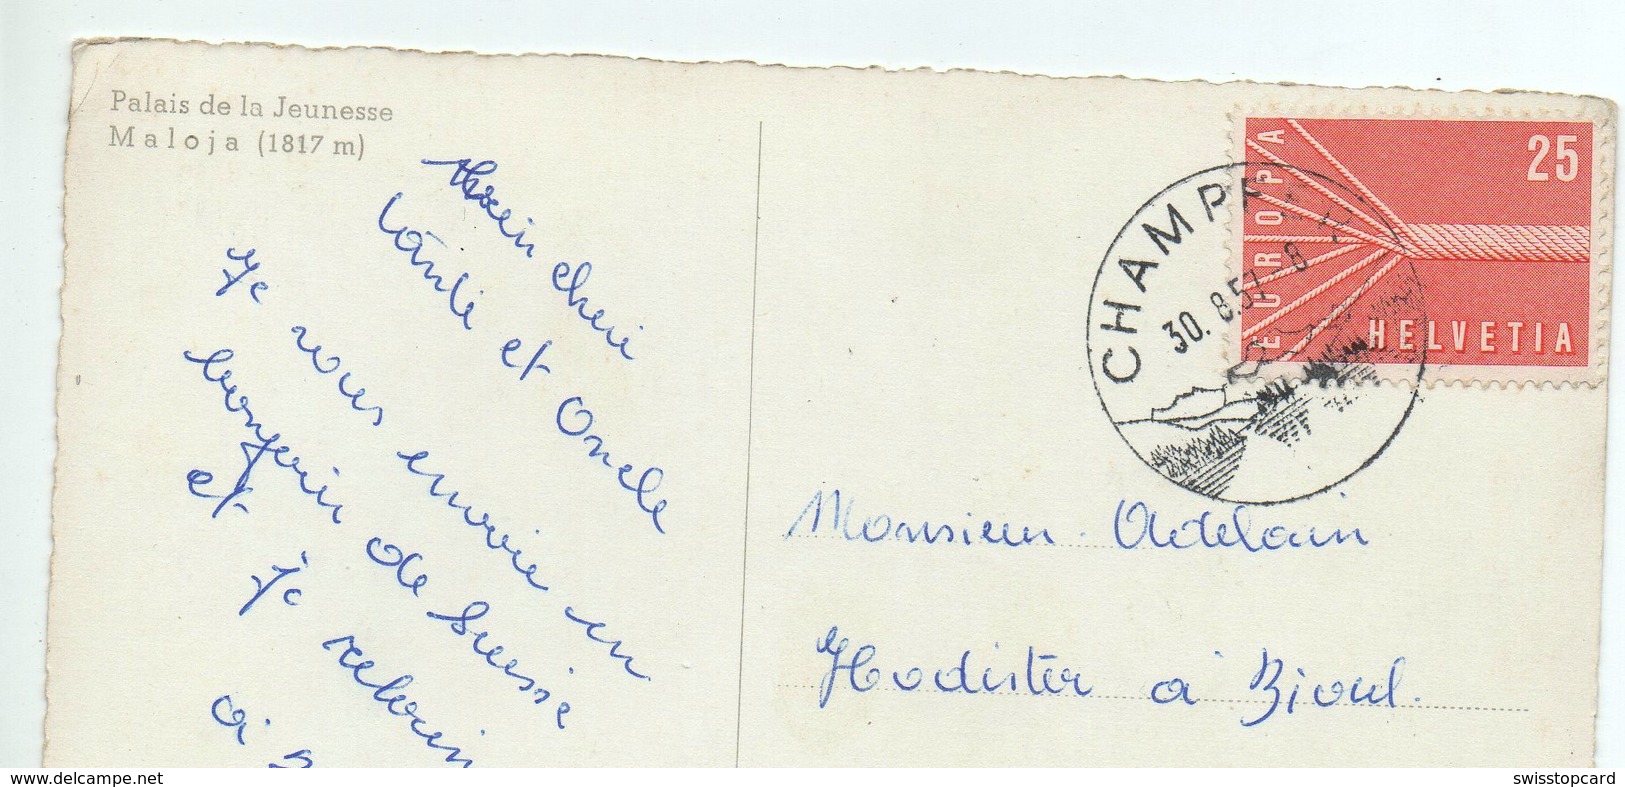 Palais de la Jeunesse
Maloja (1817 m)
cher
tante et Oncle
Je vous envoie un
bonjour de Suisse
et je
à
EUROPA
25
HELVETIA
CHAMPF
30. 8.57 -8
Monsieur Adelain
Hodister à Bioul.
www.delcampe.net
swisstopcard